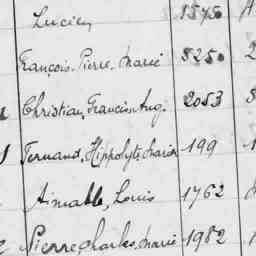 Lucien 1575
François-Pierre-Marie 8250
Christian, Francis, Aug. 2053
Fernand, Hippolyte, Marie 199
Aimable, Louis 1762
Pierre, Charles, Marie 1982